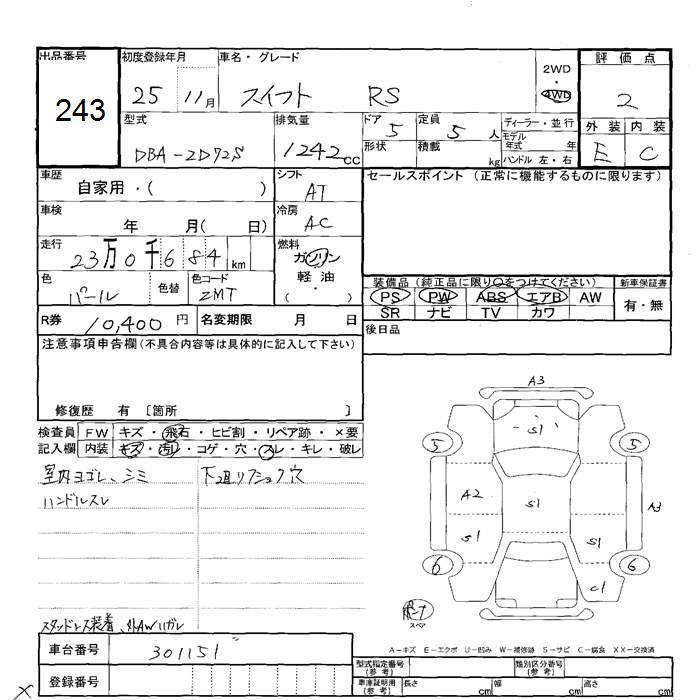 出品番号 初度登録年月 車名・グレード 2WD・4WD 評価点
243 25 11月 スイフト RS 2
外装 内装
E C
型式 排気量 ドア 定員 ディーラー・並行
DBA-ZD72S 1242cc 5 5人 モデル年式 年
形状 積載 kg ハンドル 左・右
車歴 シフト セールスポイント(正常に機能するものに限ります)
自家用・( ) AT
車検 冷房
年 月( 日) AC
走行 燃料
23万0千684km ガソリン
軽油
・( )
色 色替 色コード 装備品(純正品に限り○をつけてください) 新車保証書
パール ZMT PS PW ABS エアB AW 有・無
SR ナビ TV カワ
R券 10,400円 名変期限 月 日 後日品
注意事項申告欄(不具合内容等は具体的に記入して下さい)
修復歴 有 [箇所 ]
検査員 FW キズ・飛石・ヒビ割・リペア跡・×要
記入欄 内装 キズ・汚レ・コゲ・穴・スレ・キレ・破レ
室内ヨゴレ、シミ
ハンドルスレ
A3
S1
5 5
A2 S1 A3
S1 S1
6 6
C1
スペア
A-キズ E-エクボ U-凹み W-補修跡 S-サビ C-腐食 XX-交換済
車台番号 301151
登録番号
型式指定番号(参考) 類別区分番号(参考)
車庫証明用(参考) 長さ cm 幅 cm 高さ cm
×